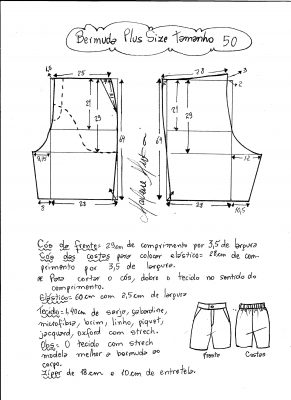 Bermuda Plus Size Tamanho 50
25
28
3
2
21
29
69
21
29
69
9,75
12
8
28
28
10,5
Cós da frente: 29cm de comprimento por 3,5 de largura
Cós das costas para colocar elástico: 28cm de com-
primento por 3,5 de largura.
* Para cortar o cós, dobre o tecido no sentido do
comprimento.
Elástico: 60cm com 2,5cm de largura
Tecido: 1,40cm de sarja, gabardine,
microfibra, brim, linho, piquet,
jacquard, oxford com strech.
Obs: O tecido com strech
modela melhor a bermuda ao
corpo.
Zíper de 18cm e 10cm de entretela.
Frente
Costas